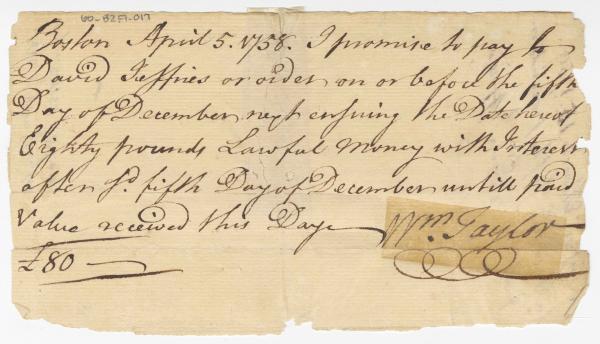 60-82F1-017
Boston April 5. 1758. I promise to pay to
David Jeffries or order on or before the fifth
Day of December next ensuing the Date hereof
Eighty pounds Lawful Money with Interest
after sd. fifth Day of December untill paid
Value received this Day
Wm. Taylor
£80